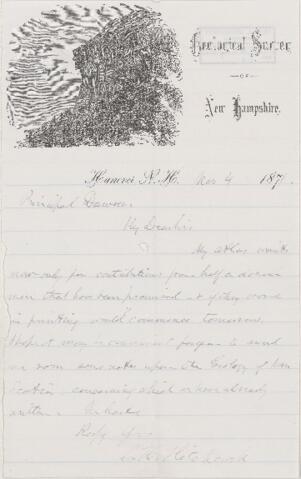 Geological Survey
OF
New Hampshire.
Hanover N. H. Nov 4 187
Principal Dawson
My Dear Sir
My atlas waits
now only for contributions from half a dozen
men that have been promised - & if they come
in printing would commence tomorrow.
not forget to send
me some notes upon the Geology of
Scotia, concerning which we have already
written.
Resp yrs
C H Hitchcock